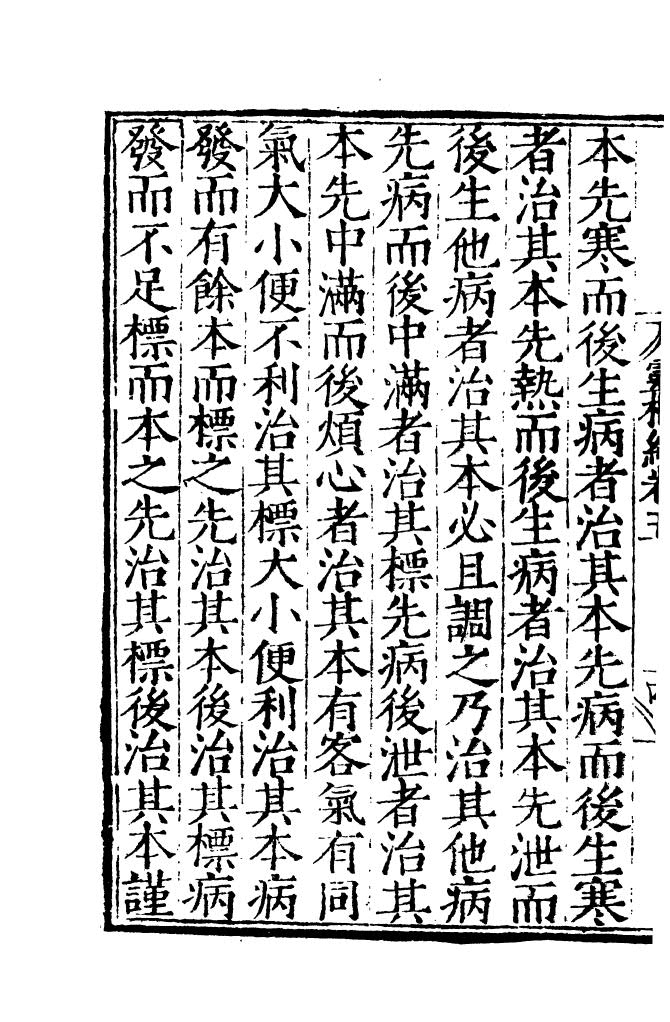 本先寒而後生病者治其本先病而後生寒
者治其本先熱而後生病者治其本先泄而
後生他病者治其本必且調之乃治其他病
先病而後中滿者治其標先病後泄者治其
本先中滿而後煩心者治其本有客氣有同
氣大小便不利治其標大小便利治其本病
發而有餘本而標之先治其本後治其標病
發而不足標而本之先治其標後治其本謹